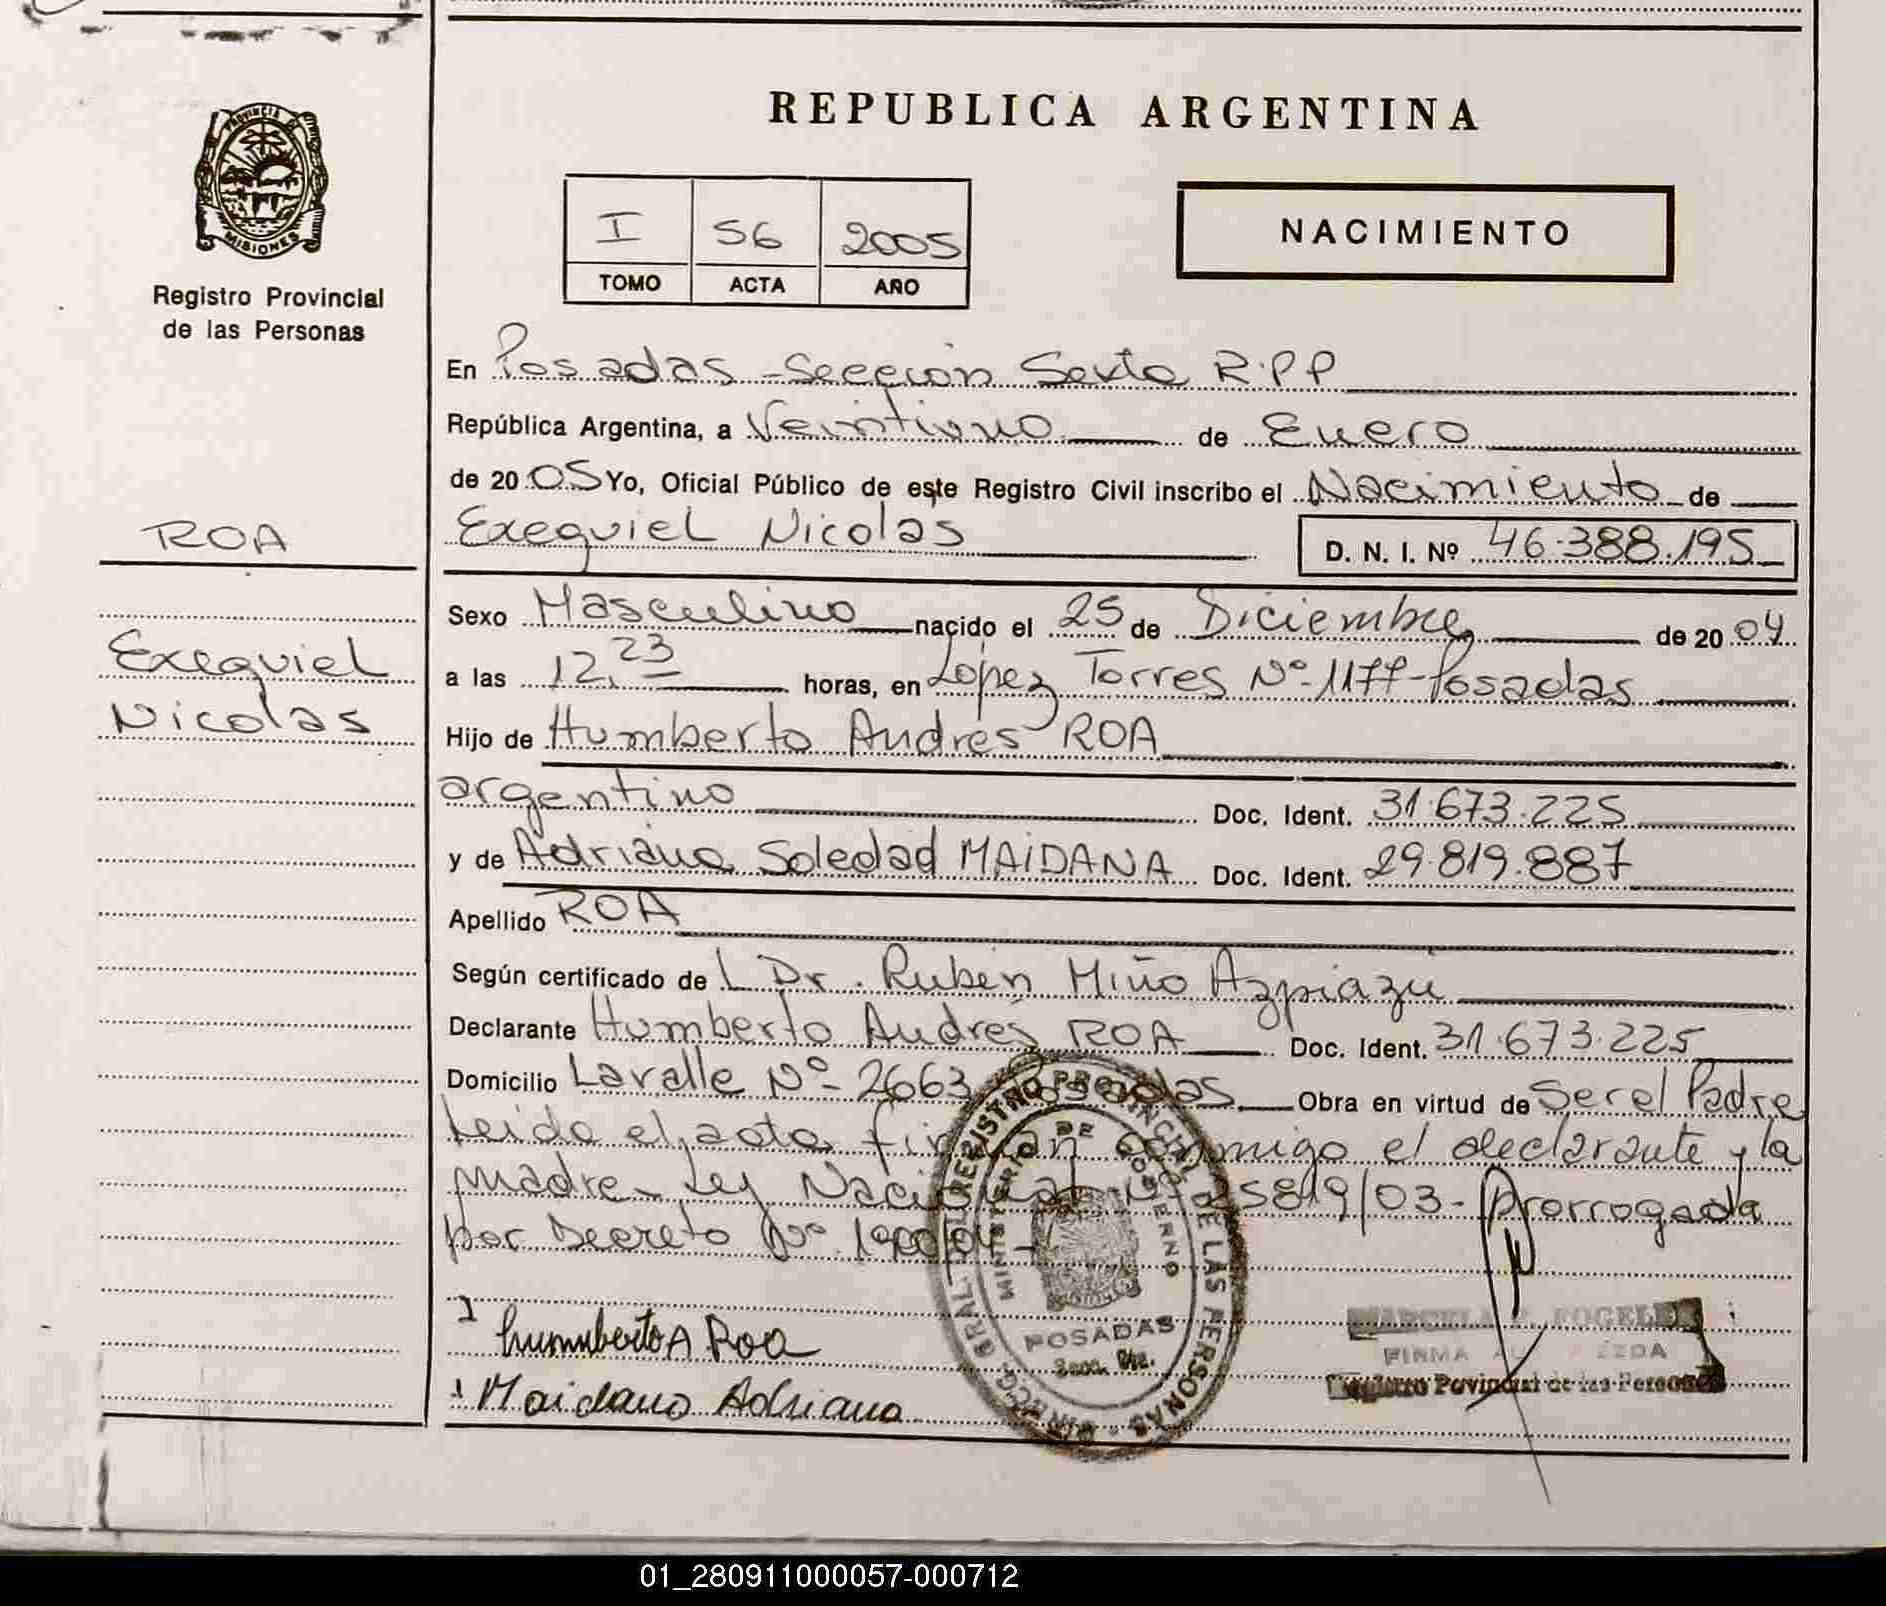 PROVINCIA DE
MISIONES
Registro Provincial
de las Personas
ROA
Exequiel
Nicolas
REPUBLICA ARGENTINA
I 56 2005
TOMO ACTA AÑO
NACIMIENTO
En Posadas - Sección Sexta R.P.P
República Argentina, a Veintiuno de Enero
de 2005 Yo, Oficial Público de este Registro Civil inscribo el Nacimiento de
Exequiel Nicolas D. N. I. Nº 46.388.195
Sexo Masculino nacido el 25 de Diciembre de 2004
a las 12,23 horas, en López Torres Nº 1177 - Posadas
Hijo de Humberto Andrés ROA
argentino Doc. Ident. 31.673.225
y de Adriana Soledad MAIDANA Doc. Ident. 29.819.887
Apellido ROA
Según certificado de L Dr. Rubén Miño Azpiazú
Declarante Humberto Andrés ROA Doc. Ident. 31.673.225
Domicilio Lavalle Nº 2663 Posadas Obra en virtud de Ser el Padre
Leido el acta firman conmigo el declarante y la
madre - Ley Nacional Nº 25819/03 - Prorrogada
por Decreto Nº 1900/04 -
Humberto A Roa
Maidana Adriana
REGISTRO PROVINCIAL DE LAS PERSONAS
MINISTERIO DE GOBIERNO
POSADAS
FIRMA
Registro Povincial de las Personas
01_280911000057-000712